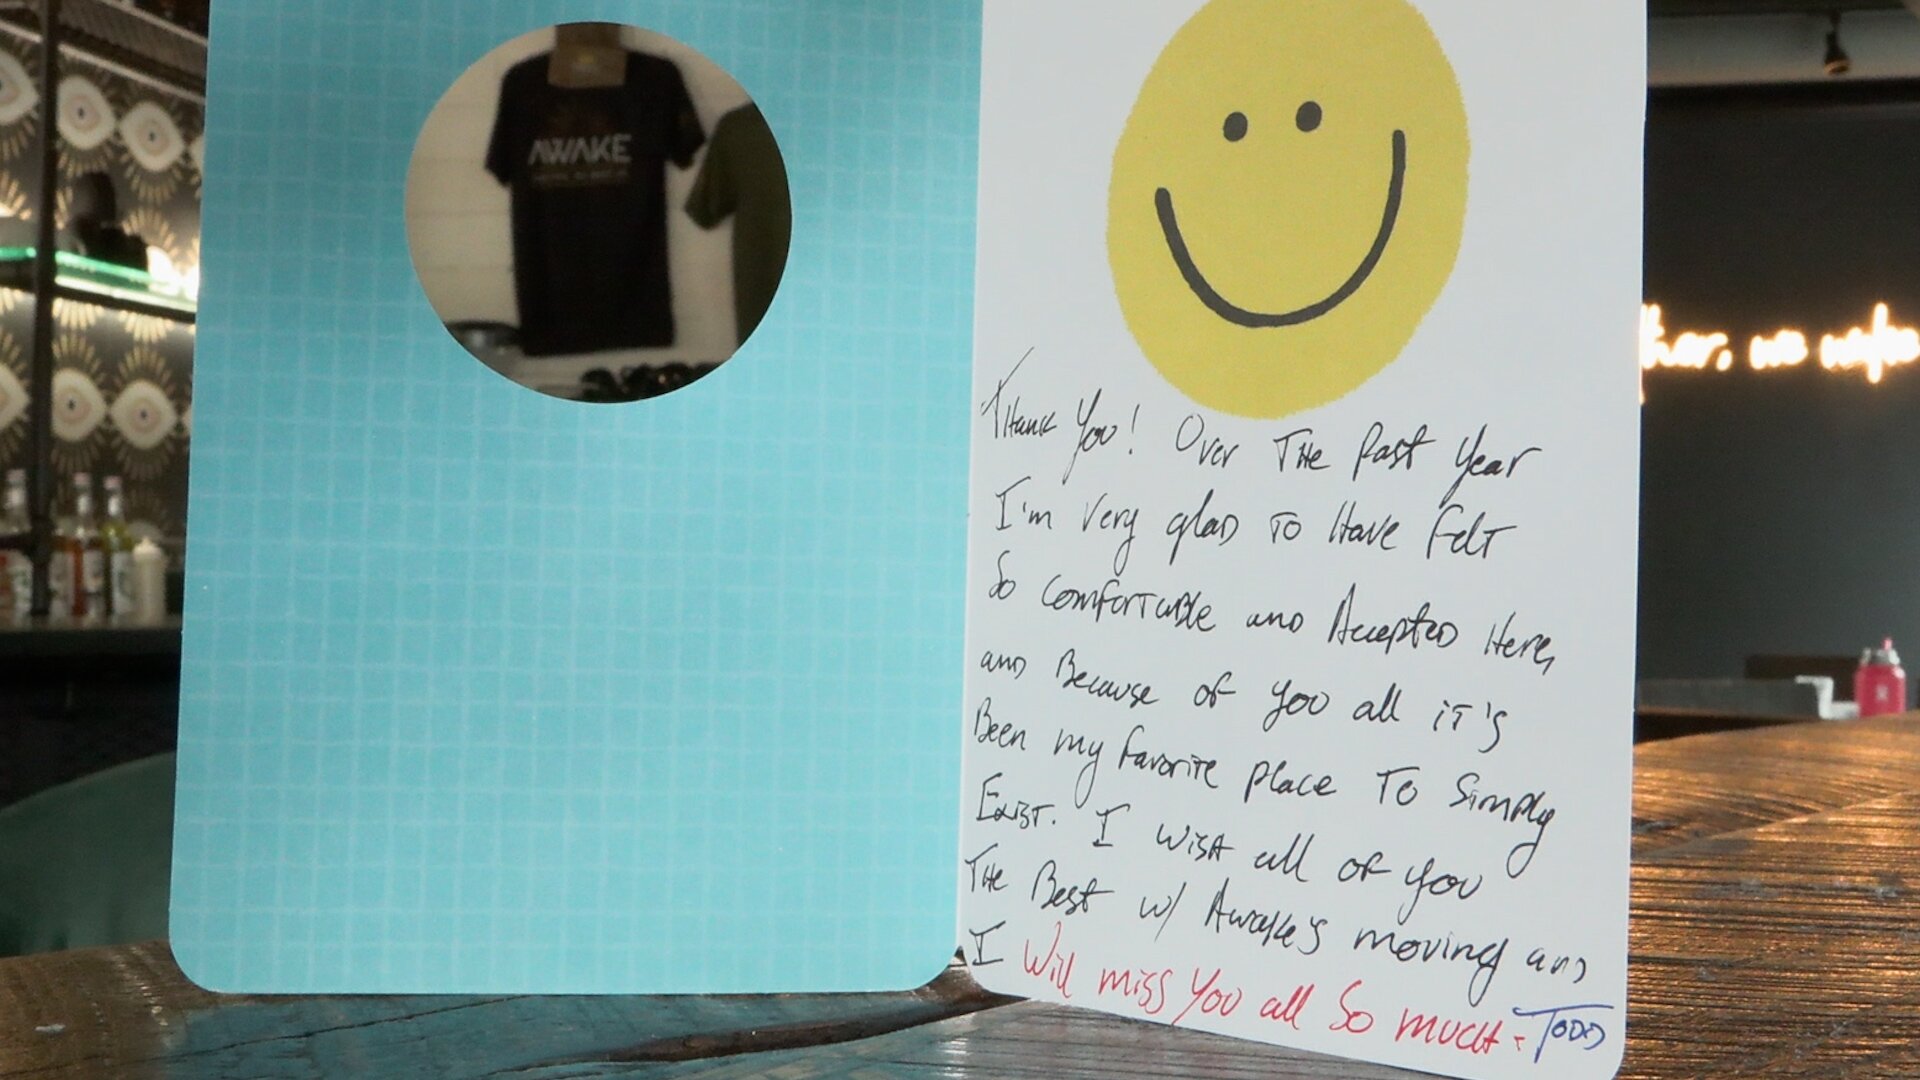 AWAKE
Thank You! Over The Past Year
I'm Very glad To Have Felt
So Comfortable and Accepted Here,
and Because of You all iT's
Been my favorite place To Simply
Exist. I wish all of you
The Best w/ Awake's moving and
I Will miss You all So much - Todd